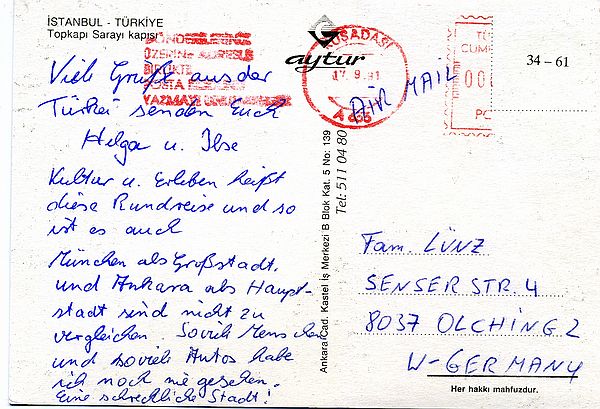 İSTANBUL - TÜRKİYE
Topkapı Sarayı kapısı
Viele Grüße aus der
Türkei senden Euch
Helga u. Ilse
Kultur u. Erleben heißt
diese Rundreise und so
ist es auch
München als Großstadt,
und Ankara als Haupt-
stadt sind nicht zu
vergleichen. Soviele Menschen
und soviele Autos habe
ich noch nie gesehen.
Eine schreckliche Stadt!
ÜZERİNE ADRESLE
BİRLİKTE
POSTA
YAZMAYI
aytur
KUŞADASI
17.9.91
AİR MAIL
34 - 61
Ankara Cad. Kastel İş Merkezi B Blok Kat. 5 No: 139
Tel: 511 04 80
Fam. LÜNZ
SENSERSTR. 4
8037 OLCHING 2
W-GERMANY
Her hakkı mahfuzdur.